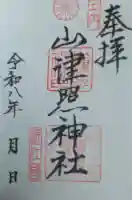 奉拝
山津照神社
令和八年 月 日